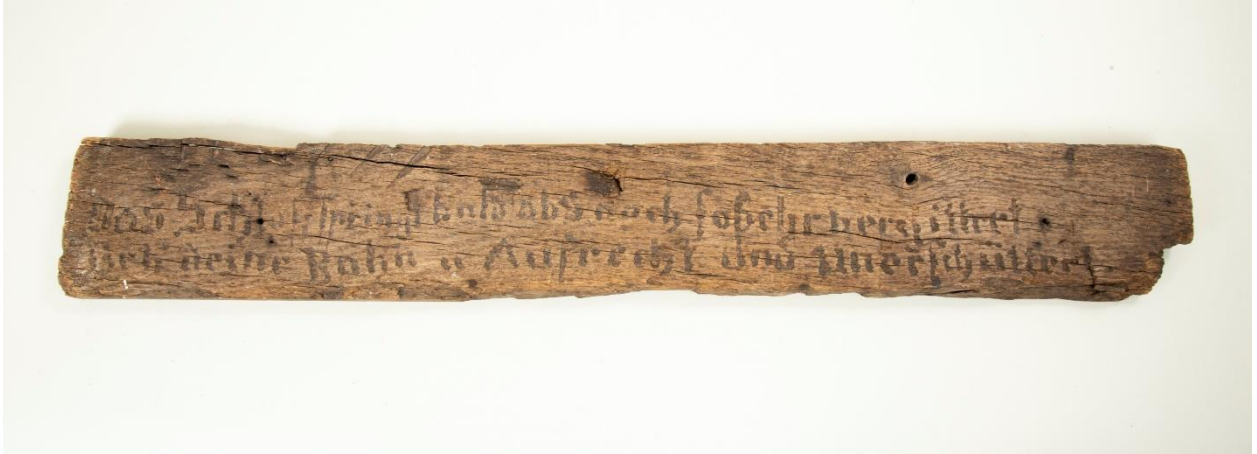 Das Schloß springt bald obs noch so sehr vergittert
Geh deine Bahn u Aufrecht und Unerschüttert